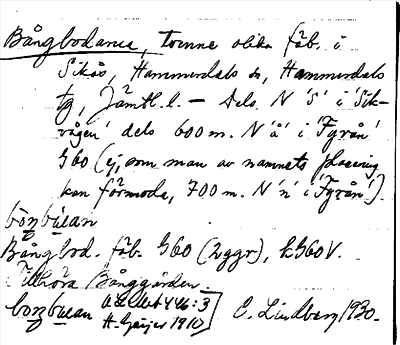 Bångbodarna, tvenne olika fäb. i
Sikås, Hammerdals sn, Hammerdals
tg, Jämtl. l. – Dels N 'S' i 'Sik-
vågen' dels 600 m. N 'å' i 'Fyrån'
G60 (ej, som man av namnets placering
kan förmoda, 700 m. N 'n' i 'Fyrån').
Bångbod. fäb. G60 (2 ggr), k G60 V.
Tillhöra Bånggården.
ULMA 446:3
H. Geijer 1910
C. Lindberg 1930.